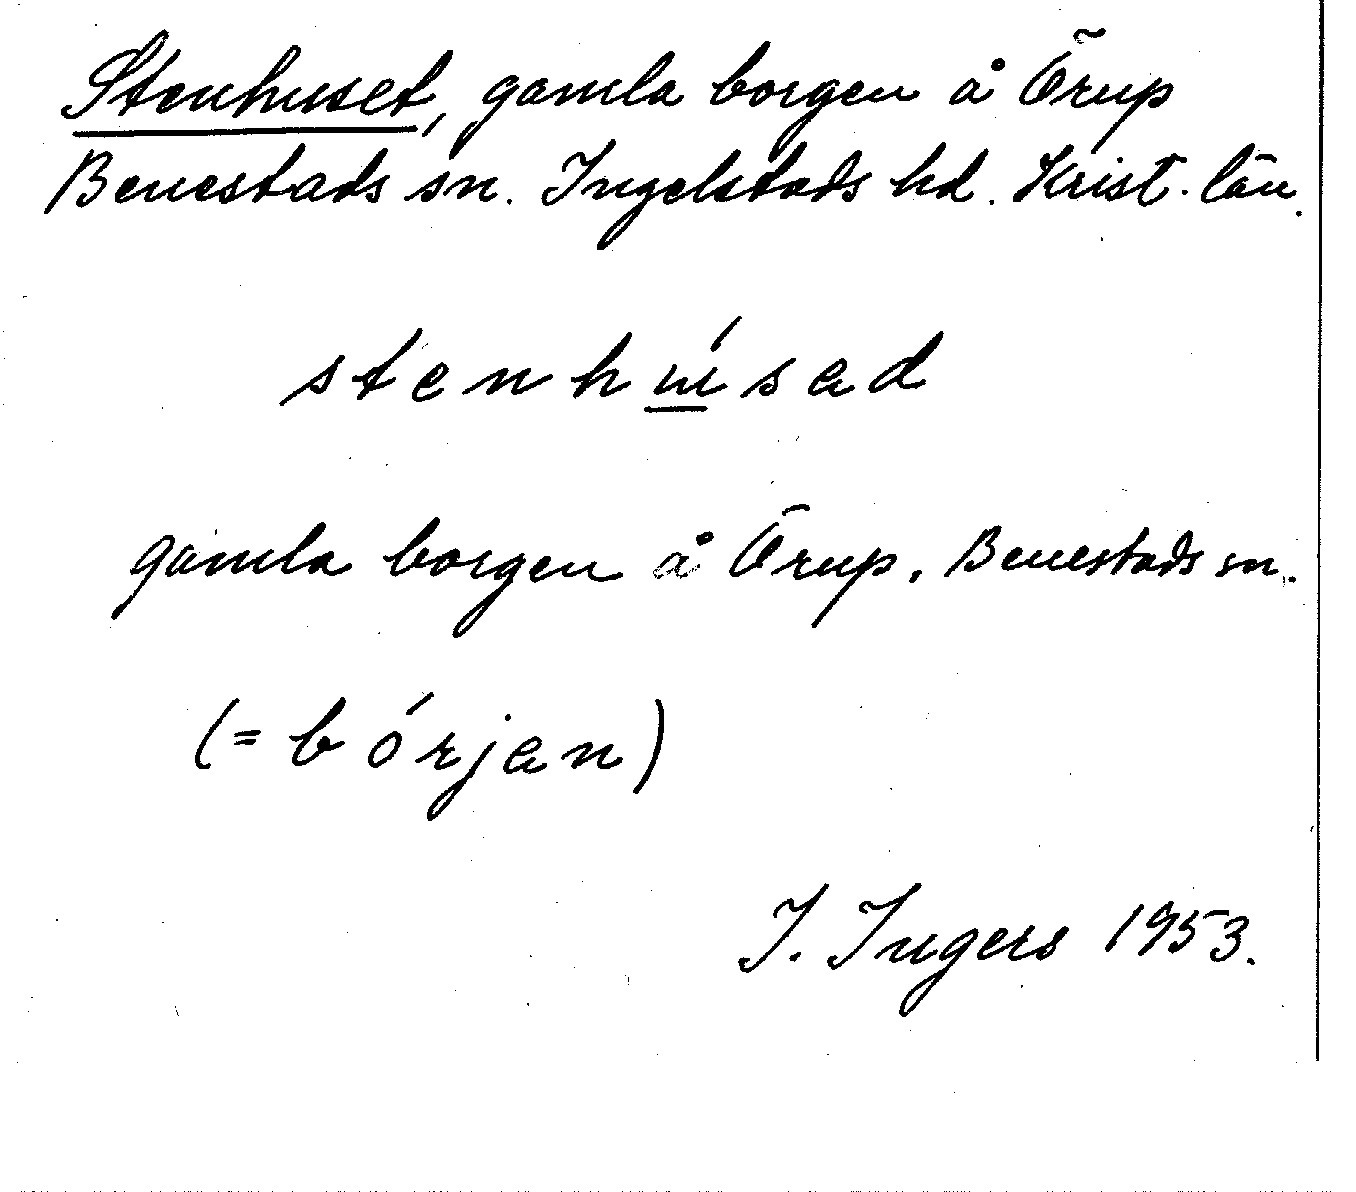 Stenhuset, gamla borgen å Örup
Benestads sn. Ingelstads hd. Krist. län.
stenhúsad
gamla borgen å Örup, Benestads sn.
(= bórjan)
I. Ingers 1953.